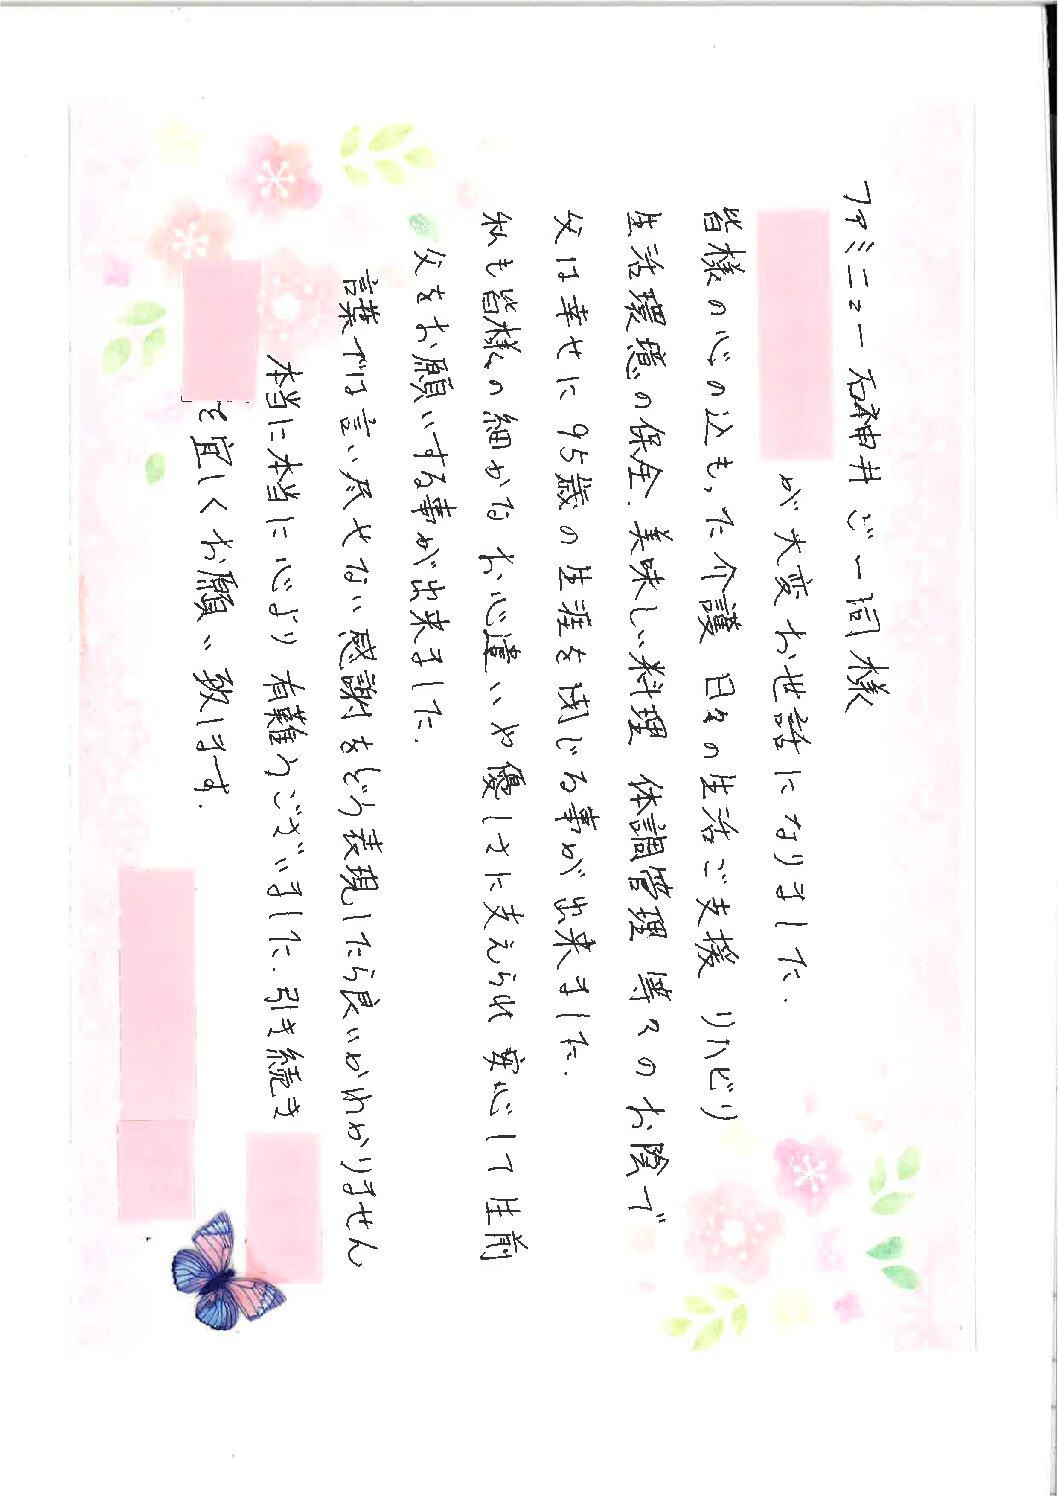 ファミニュー石神井ご一同様
が大変お世話になりました.
皆様の心の込もった介護 日々の生活ご支援 リハビリ
生活環境の保全.美味しい料理 体調管理 等々のお陰で
父は幸せに95歳の生涯を閉じる事が出来ました.
私も皆様の細かなお心遣いや優しさに支えられ 安心して生前
父をお願いする事が出来ました.
言葉では言い尽せない感謝をどう表現したら良いかわかりません
本当に本当に心より有難うございました.引き続き
を宜しくお願い致します.